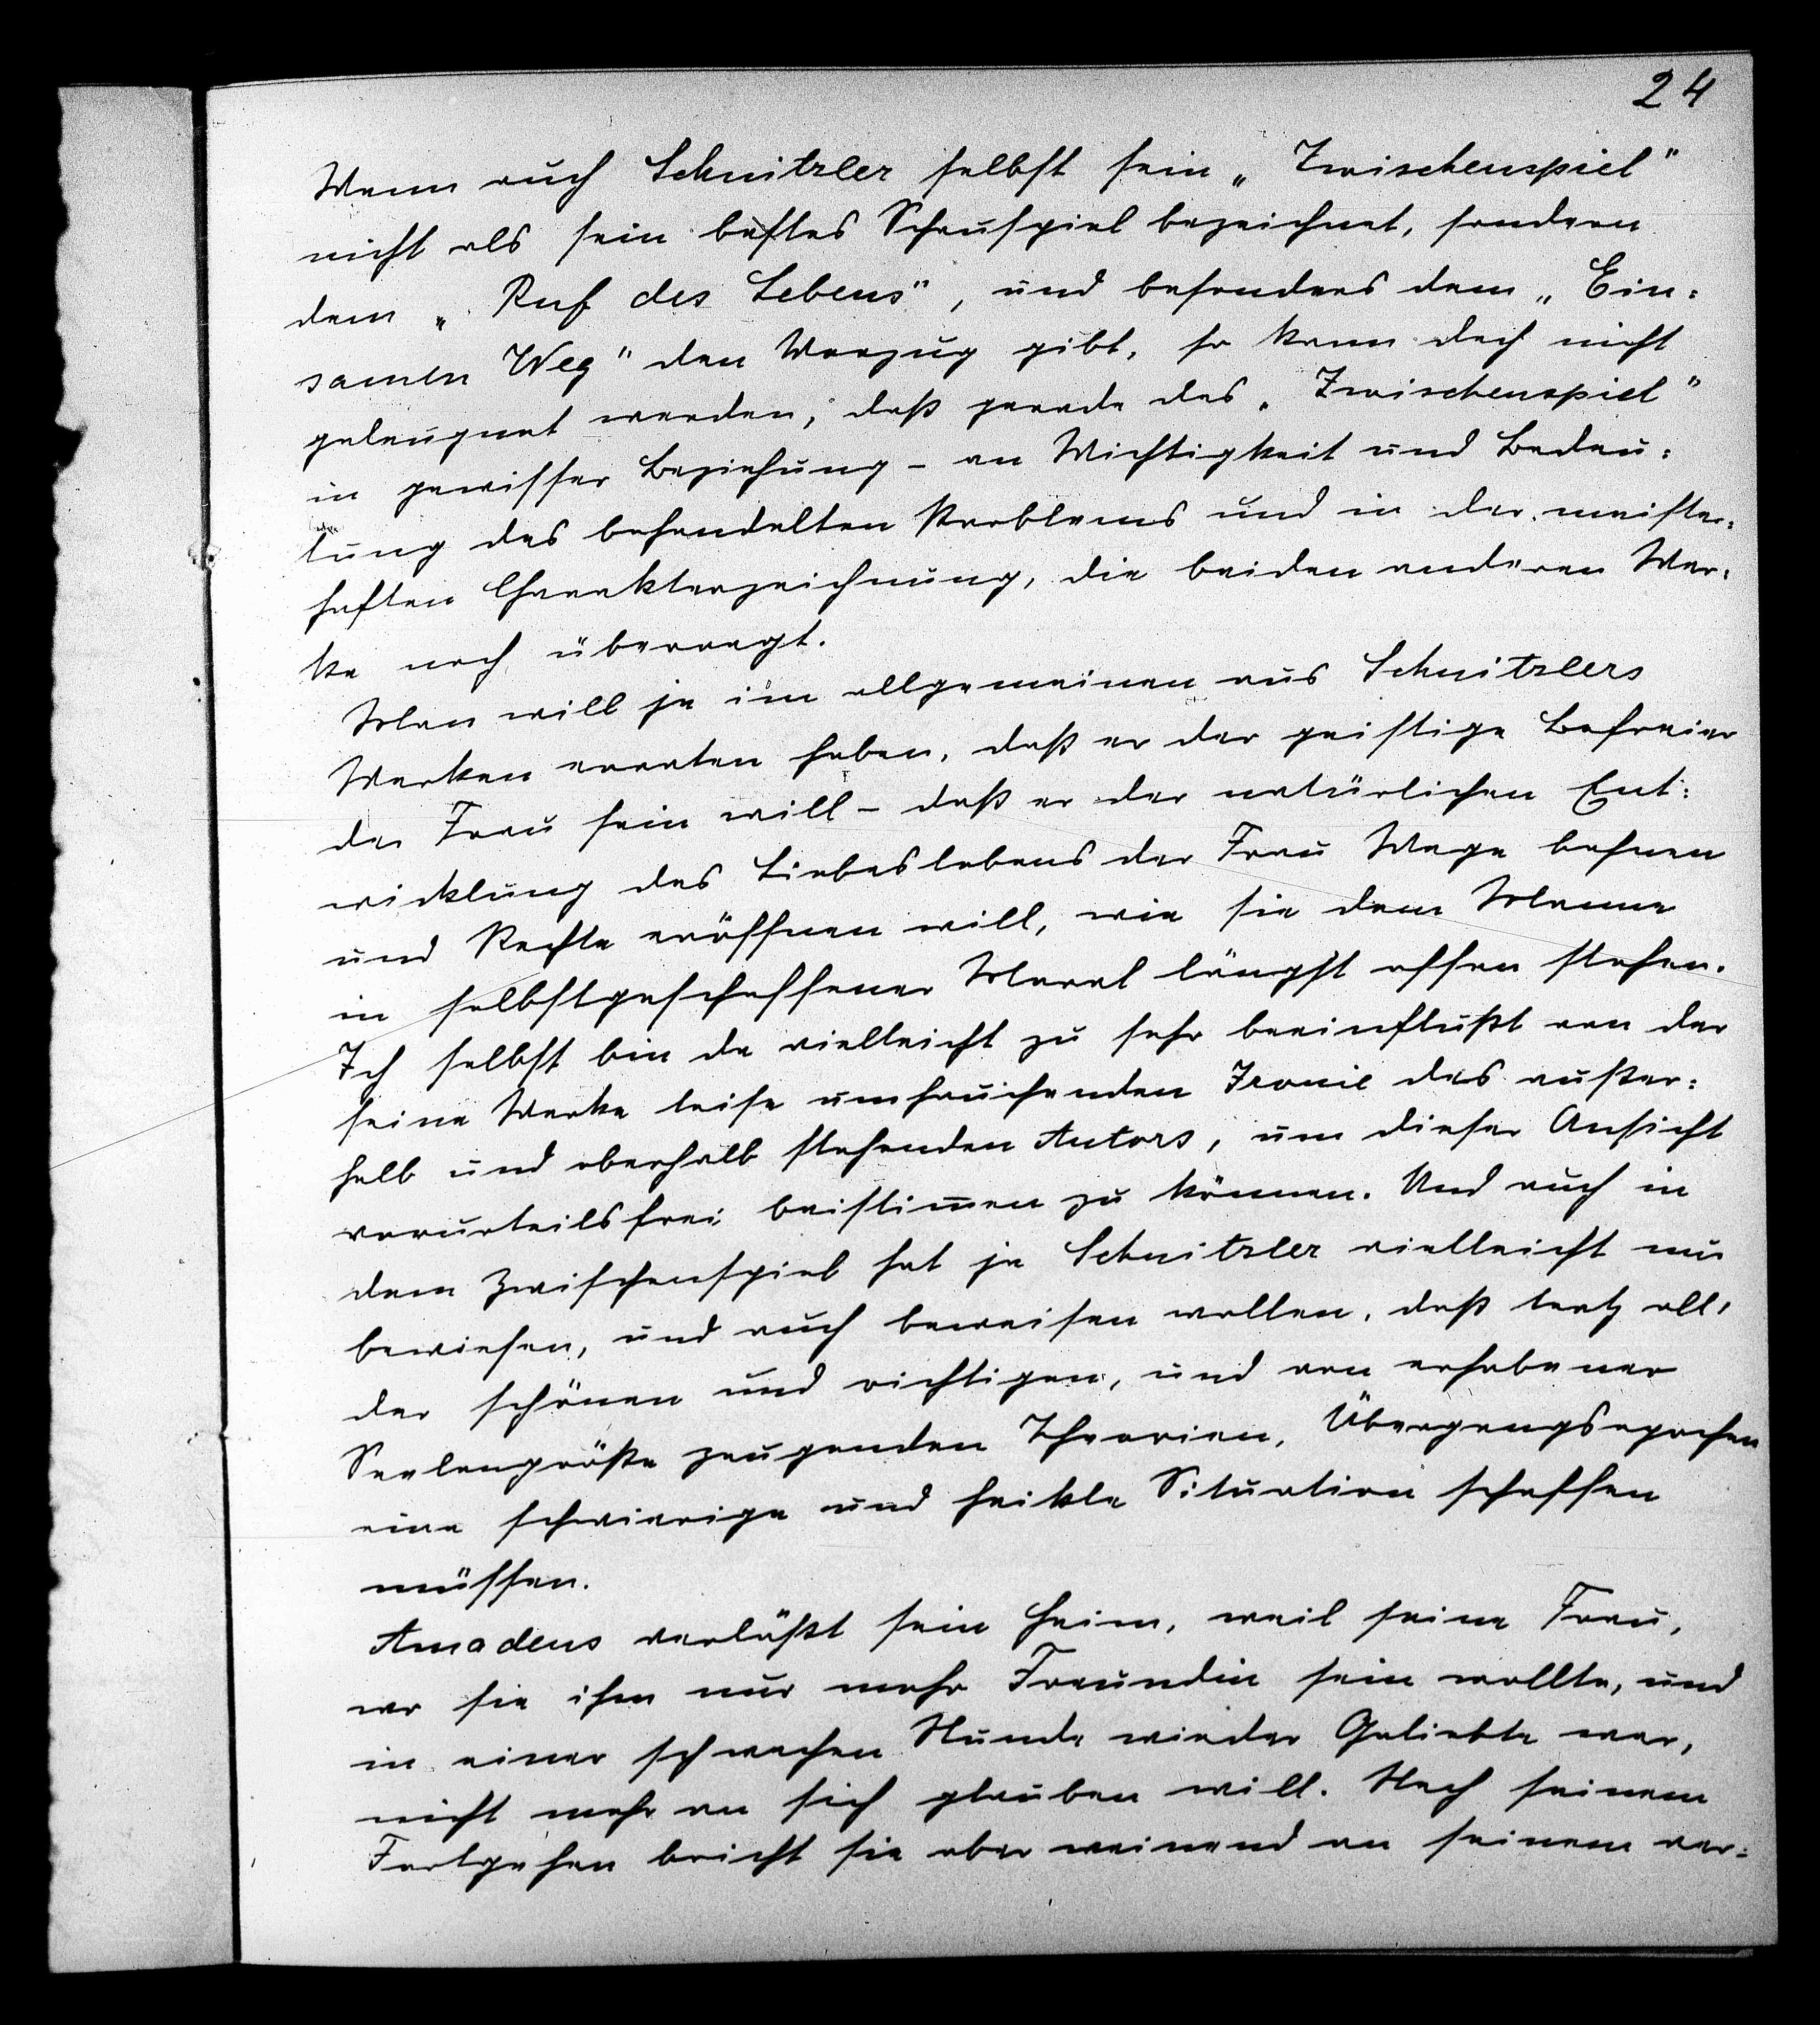 24
Wenn auch Schnitzler selbst sein „Zwischenspiel"
nicht als sein bestes Schauspiel bezeichnet, sondern
dem „Ruf des Lebens", und besonders dem „Ein-
samen Weg" den Vorzug gibt, so kann doch nicht
geleugnet werden, daß gerade das „Zwischenspiel"
in gewisser Beziehung - an Wichtigkeit und Bedeu-
tung des behandelten Problems und in der meister-
haften Charakterzeichnung, die beiden anderen Wer-
ke noch überragt.
Man will ja im allgemeinen aus Schnitzlers
Werken erraten haben, daß er der geistige Befreier
der Frau sein will - daß er der natürlichen Ent-
wicklung des Liebeslebens der Frau Wege bahnen
und Rechte eröffnen will, wie sie dem Manne
in selbstgeschaffener Moral längst offen stehen.
Ich selbst bin da vielleicht zu sehr beeinflußt von der
seine Werke leise umhauchenden Ironie des außer-
halb und oberhalb stehenden Autors, um dieser Ansicht
vorurteilsfrei beistimmen zu können. Und auch in
dem Zwischenspiel hat ja Schnitzler vielleicht nur
bewiesen, und auch beweisen wollen, daß trotz all'
der schönen und richtigen, und von erhabener
Seelengröße zeugenden Theorien, Übergangsepochen
eine schwierige und heikle Situation schaffen
müssen.
Amadeus verläßt sein Heim, weil seine Frau,
wo sie ihm nur mehr Freundin sein wollte, und
in einer schwachen Stunde wieder Geliebte war,
nicht mehr an sich glauben will. Nach seinem
Fortgehen bricht sie aber weinend an seinem ver-